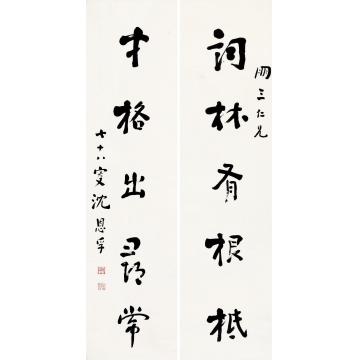 朋三仁兄
詞林有根柢
才格出尋常
七十八叟沈恩孚